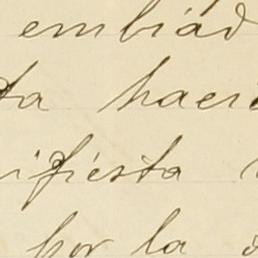 embiad
ta haci
ifiesta
por la